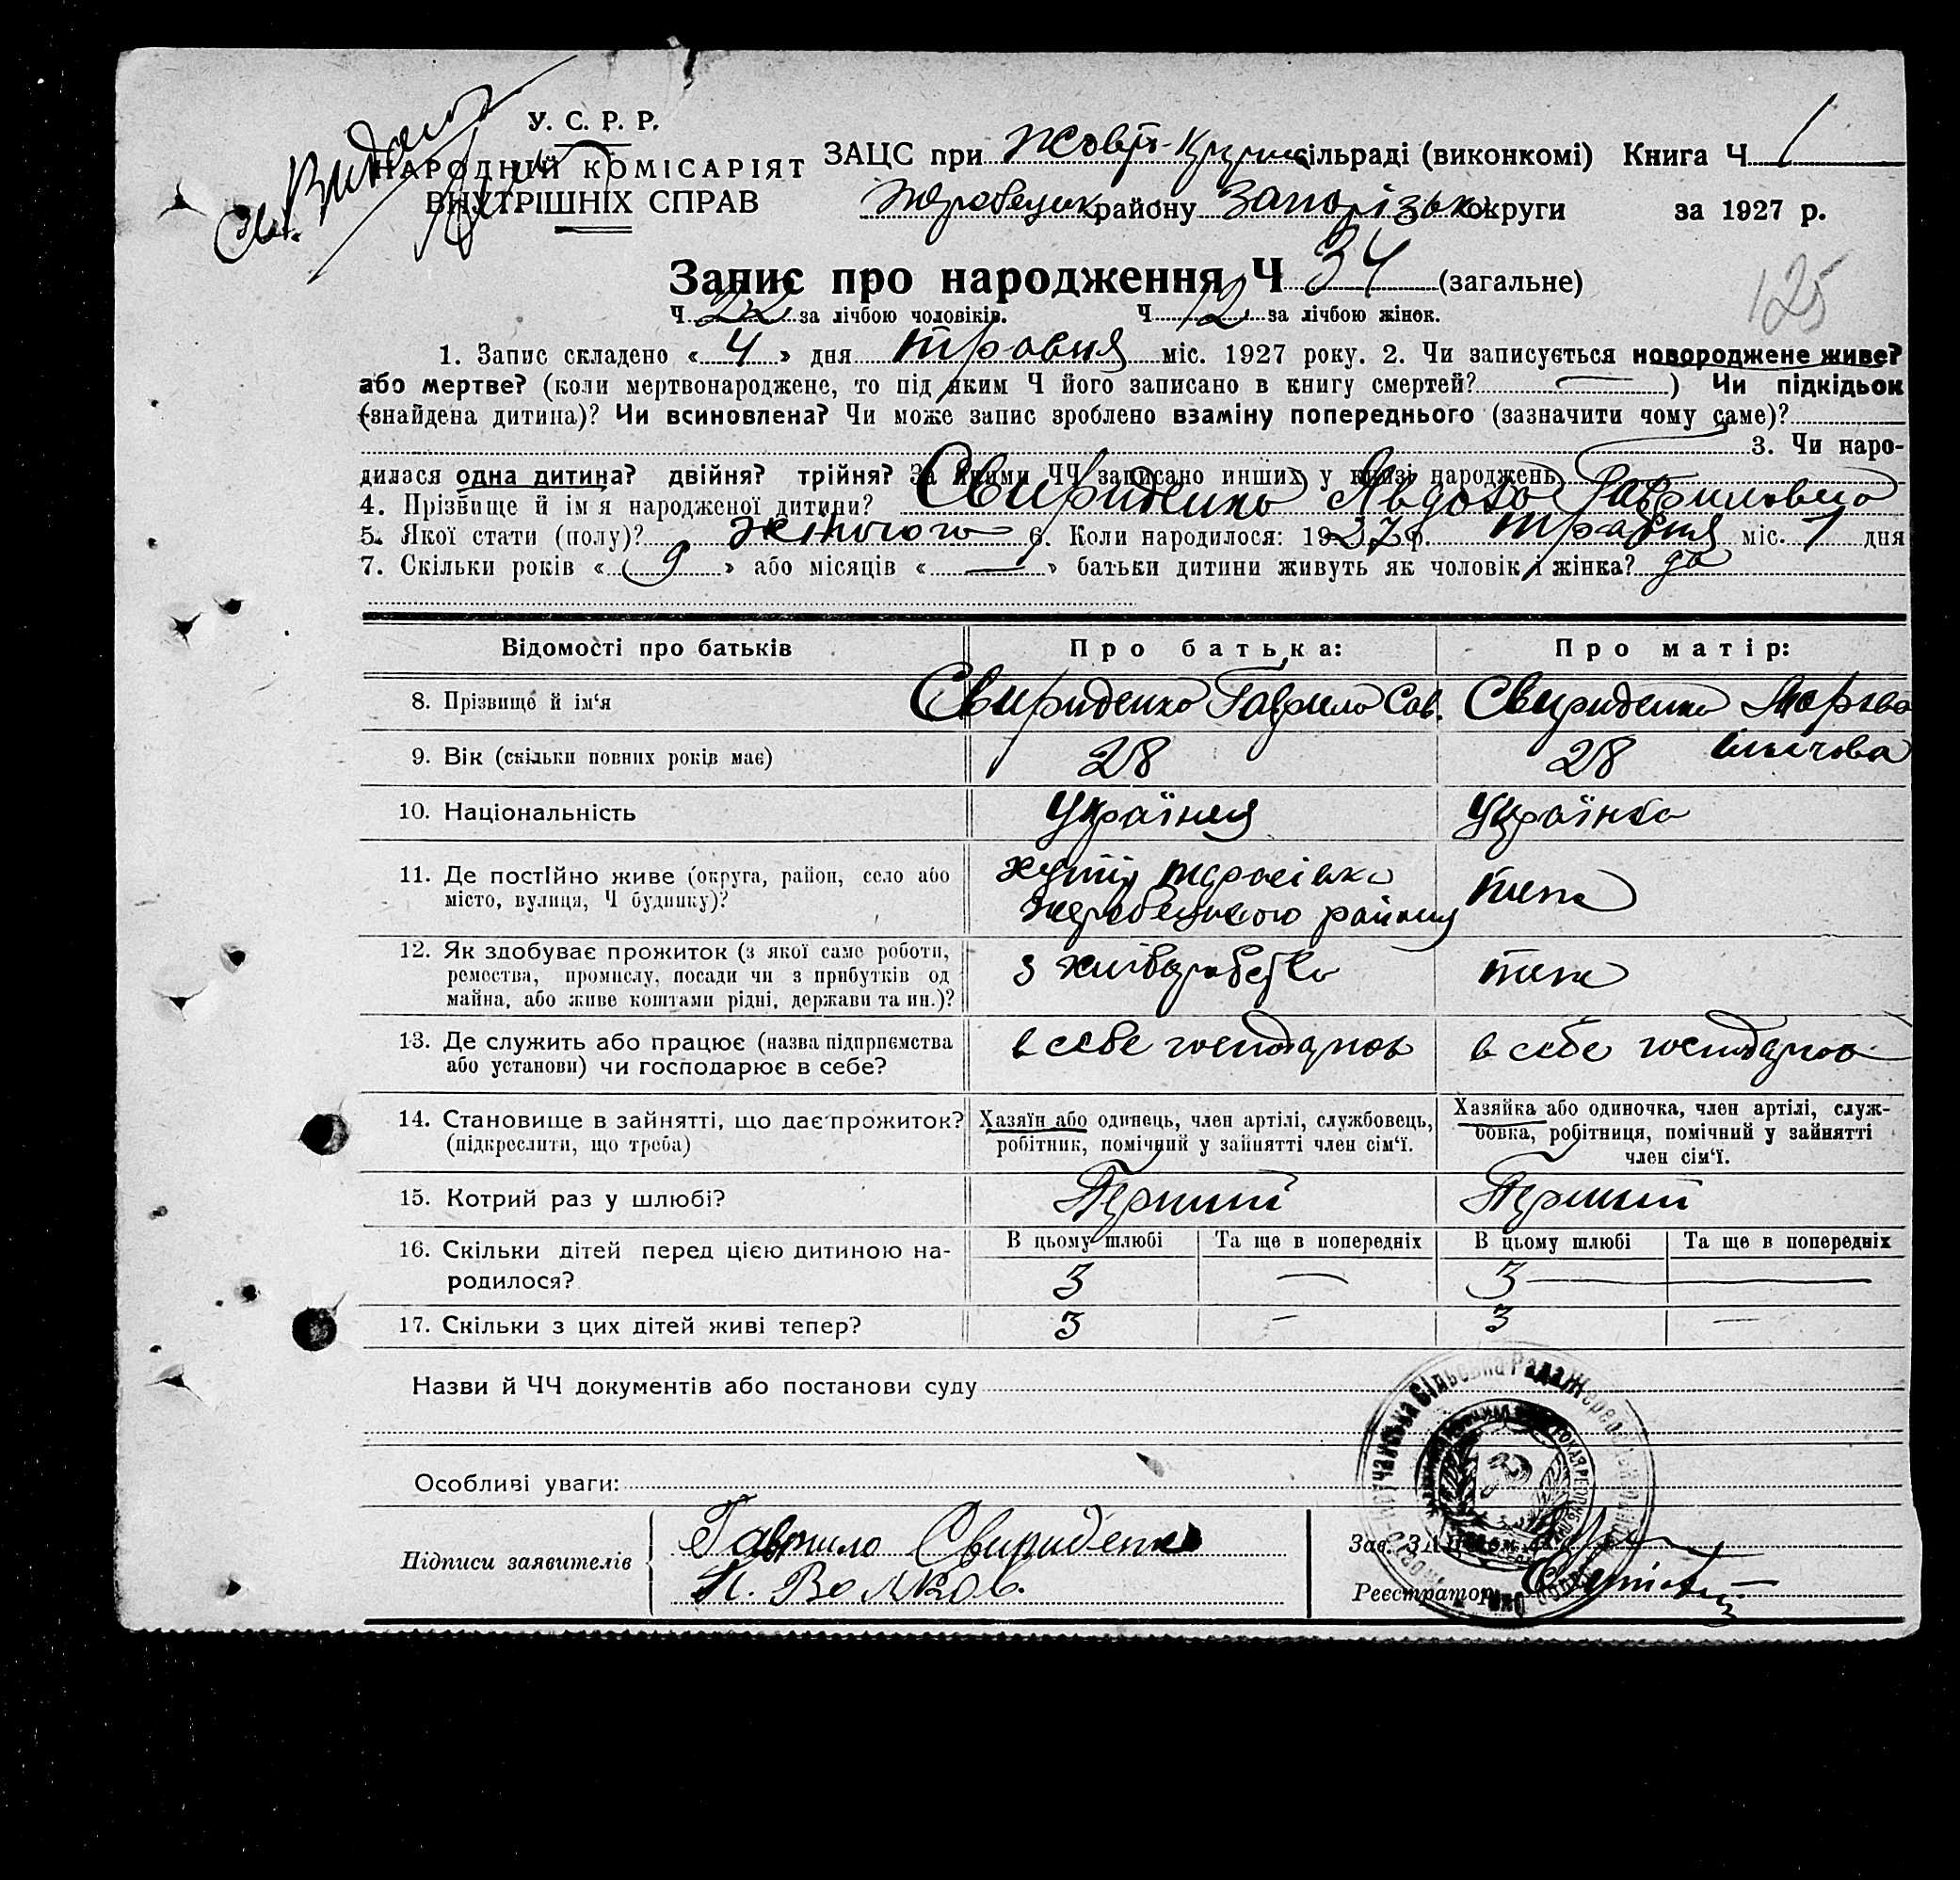 Видана
У. С. Р. Р.
НАРОДНІЙ КОМІСАРІЯТ
ВНУТРІШНІХ СПРАВ
ЗАЦС при Жовт- сільраді (виконкомі) Книга Ч 1
району Запорізької округи за 1927 р.
Запис про народження Ч 34 (загальне)
125
Ч 22 за лічбою чоловіків. Ч 12 за лічбою жінок.
1. Запис складено « 4 » дня травня міс. 1927 року. 2. Чи записується новороджене живе?
або мертве? (коли мертвонароджене, то під яким Ч його записано в книгу смертей? — ) Чи підкідьок
(знайдена дитина)? Чи всиновлена? Чи може запис зроблено взаміну попереднього (зазначити чому саме)?
3. Чи наро-
дилася одна дитина? двійня? трійня? За якими ЧЧ записано инших у книзі народжень
4. Прізвище й ім я народженої дитини? Свириденко Явдоха Гавриловна
5. Якої стати (полу)? жіночого 6. Коли народилося: 1927 р. травня міс. 1 дня
7. Скільки років « 9 » або місяців « — » батьки дитини живуть як чоловік і жінка? да
Відомості про батьків Про батька: Про матір:
8. Прізвище й ім‘я Свириденко Гаврило Сав. Свириденко Марфа
9. Вік (скільки повних років має) 28 28
10. Національність Українец Українка
11. Де постійно живе (округа, район, село або хутір Тарасівка
місто, вулиця, Ч будинку)? Жеребецького району теж
12. Як здобуває прожиток (з якої саме роботи,
ремества, промислу, посади чи з прибутків од з хліборобства теж
майна, або живе коштами рідні, держави та ин.)?
13. Де служить або працює (назва підприємства в себе господарює в себе господарює
або установи) чи господарює в себе?
14. Становище в зайнятті, що дає прожиток? Хазяїн або одинець, член артілі, службовець, Хазяйка або одиночка, член артілі, служ-
(підкреслити, що треба) робітник, помічний у зайнятті член сім‘ї. бовка, робітниця, помічний у зайнятті
член сім‘ї.
15. Котрий раз у шлюбі? Перший Перший
16. Скільки дітей перед цією дитиною на- В цьому шлюбі Та ще в попередніх В цьому шлюбі Та ще в попередніх
родилося? 3 — 3 —
17. Скільки з цих дітей живі тепер? 3 — 3 —
Назви й ЧЧ документів або постанови суду
Особливі уваги:
Підписи заявителів Гаврило Свириденко Зав. ЗАЦСом
Волков. Реєстратор
Сільська Рада